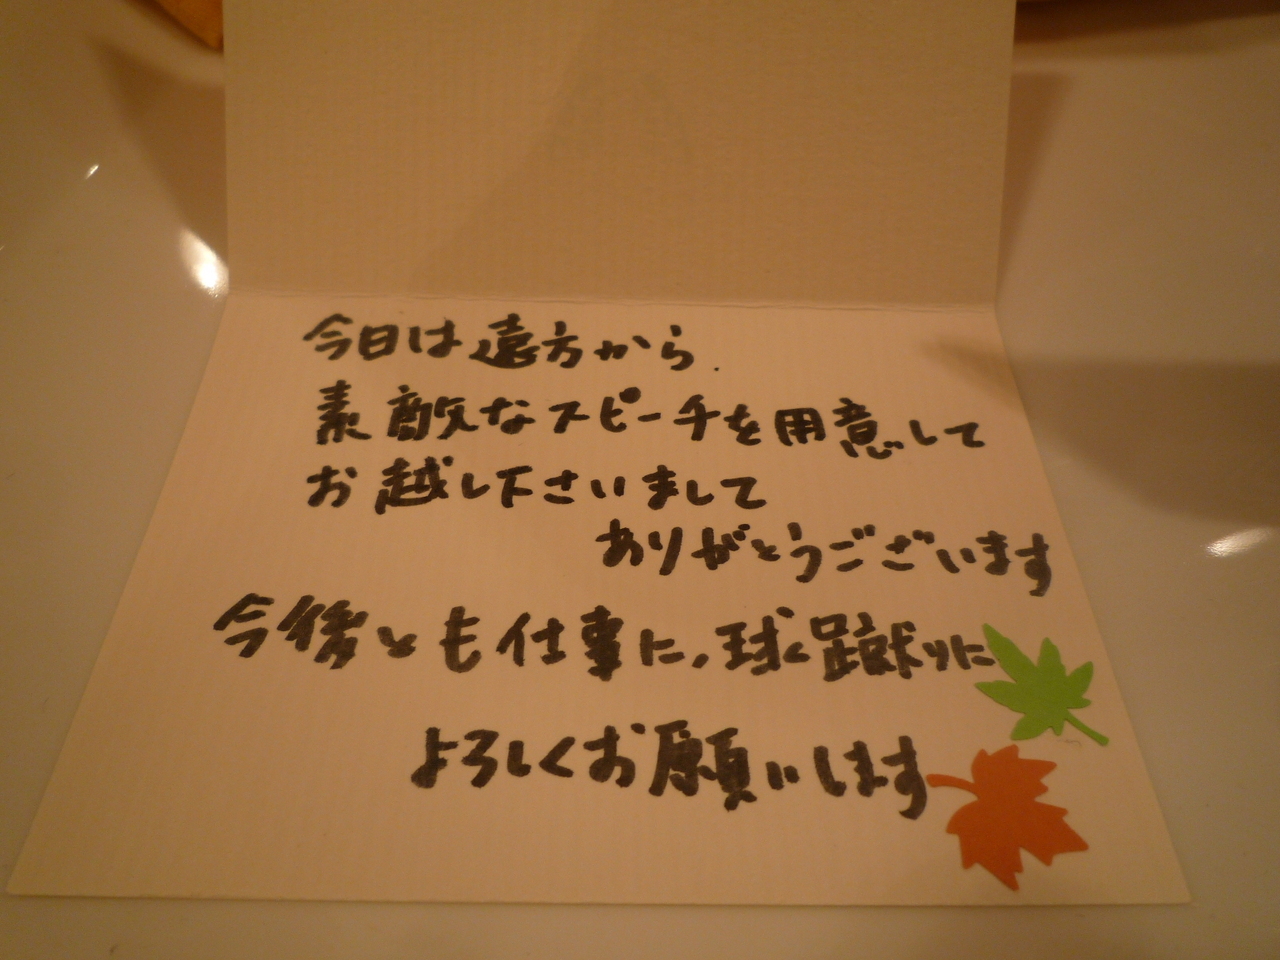 今日は遠方から.
素敵なスピーチを用意して
お越し下さいまして
ありがとうございます
今後とも仕事に、球蹴りに
よろしくお願いします